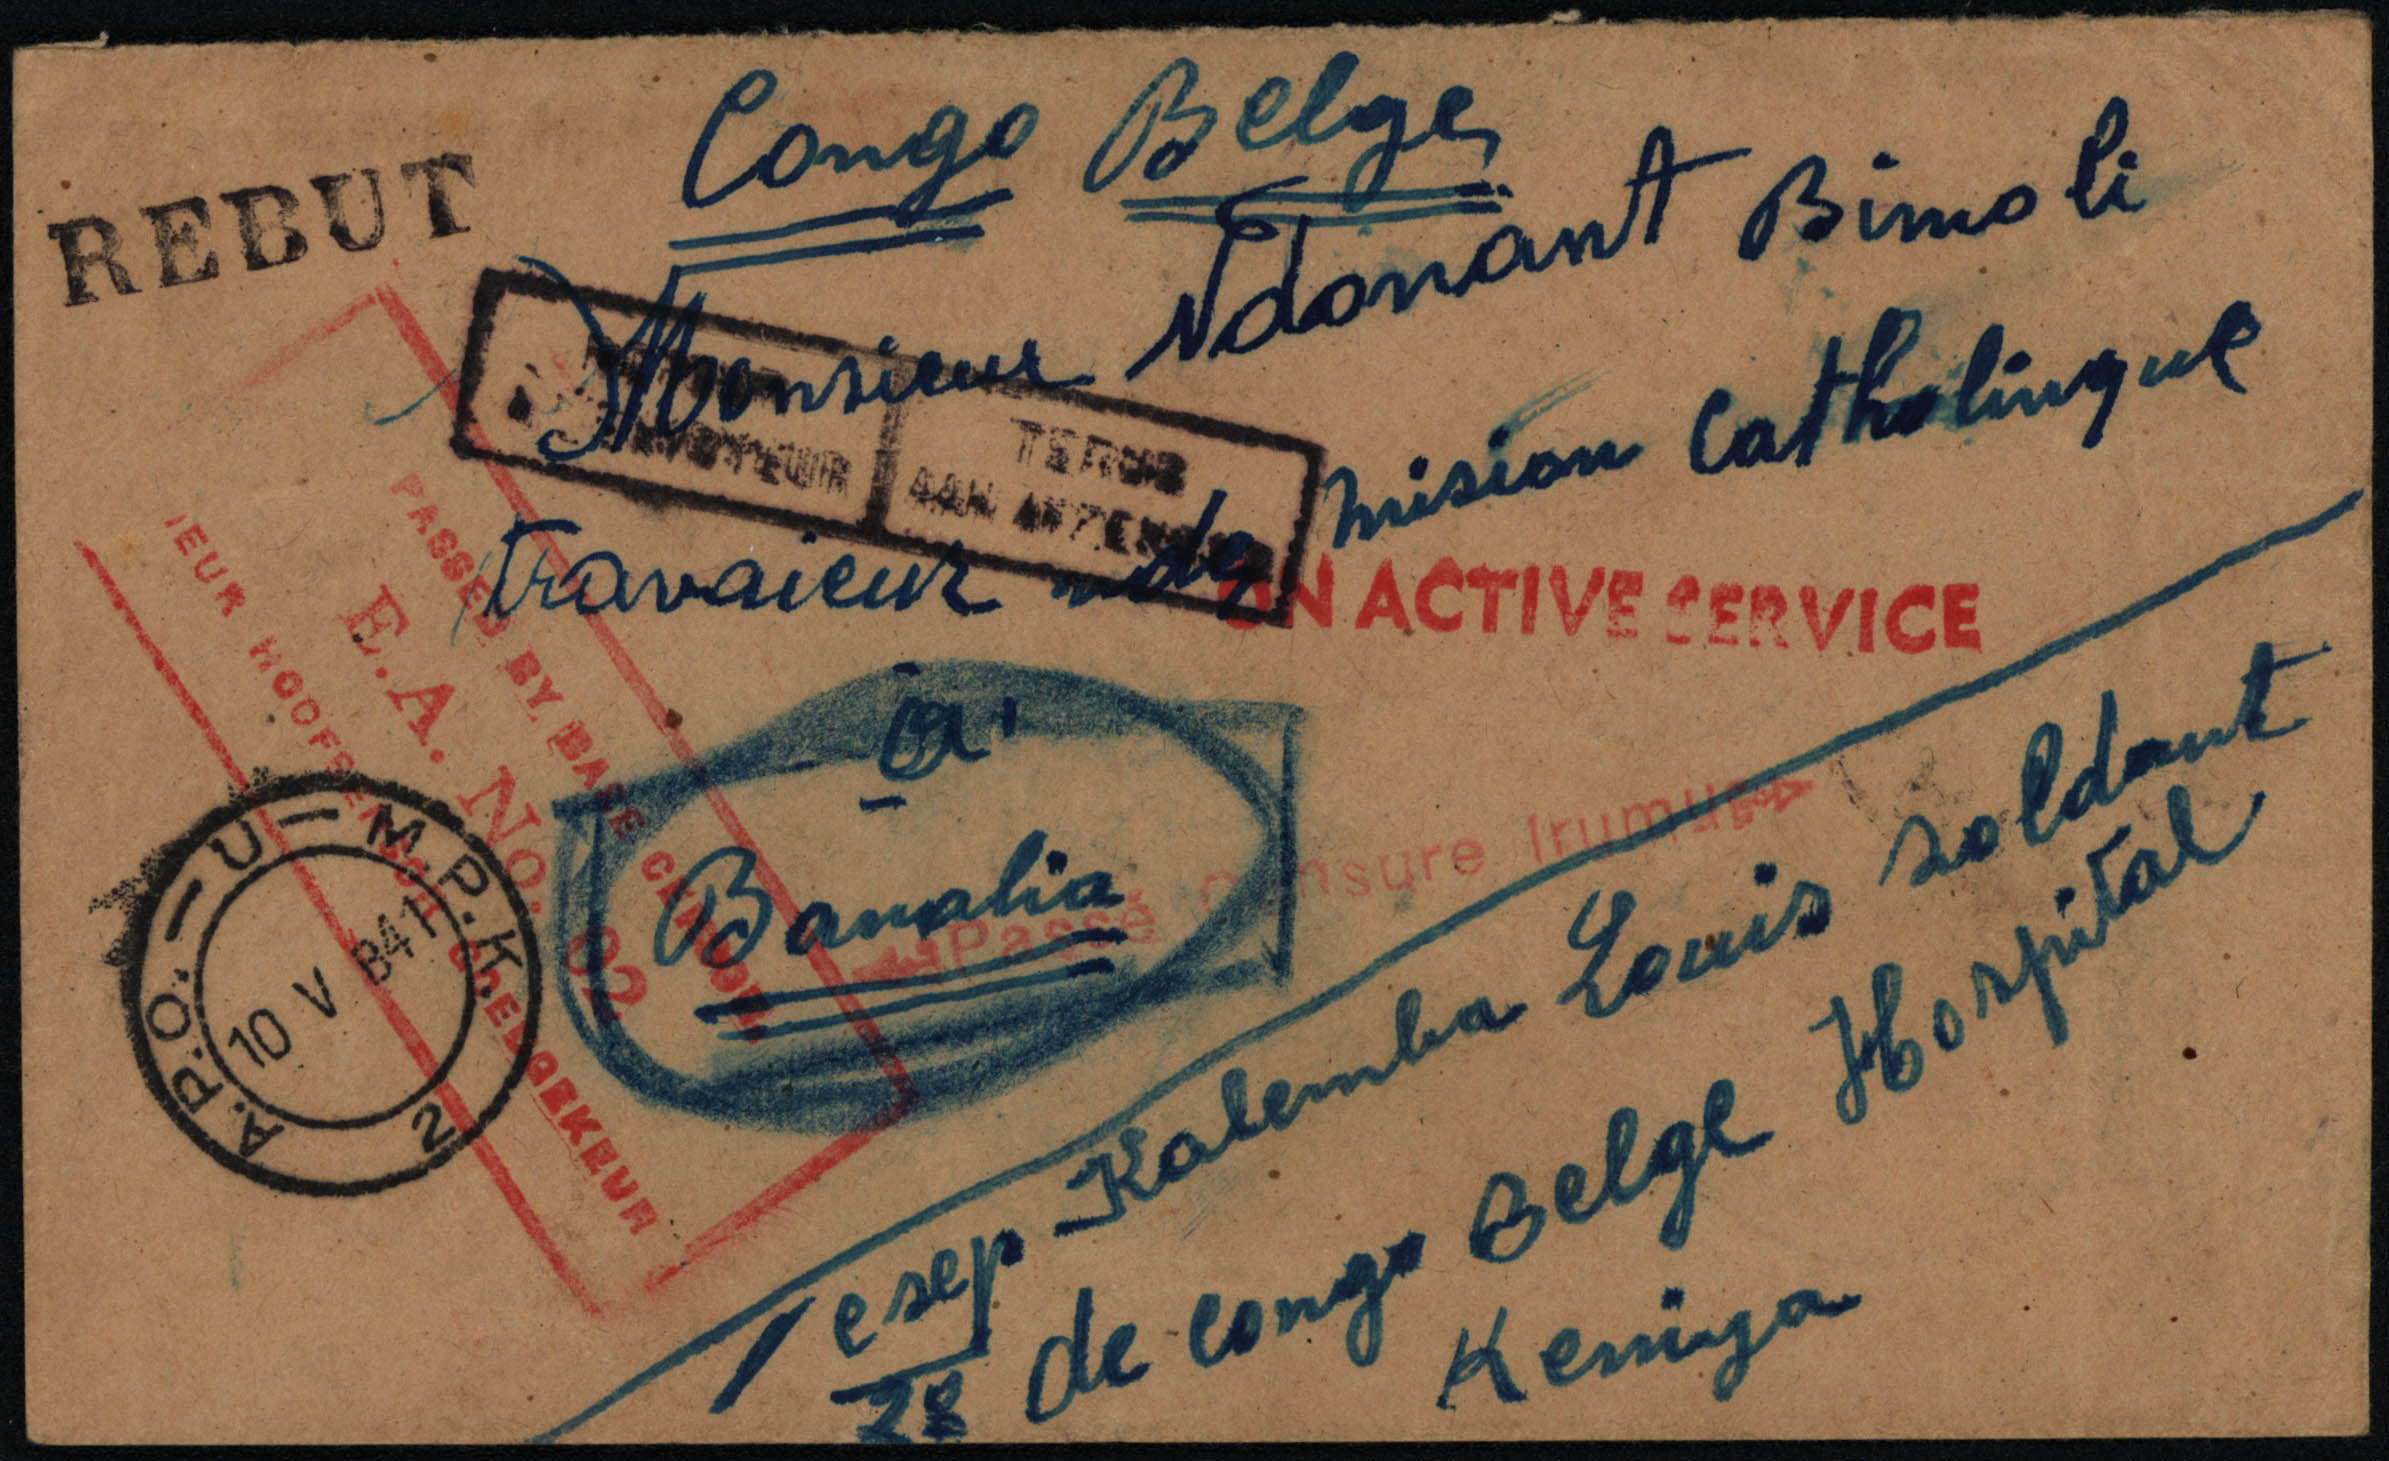 Congo Belge
REBUT
Monsieur Ndonant Bimoli
ENVOYEUR
TERUG
AAN AFZENDER
travaieur de mision Catholinque
ON ACTIVE SERVICE
à
Banalia
PASSED BY BASE CENSOR
E.A. No. 32
IEUR HOOFSENSOR GOEDGEKEUR
Passé Censure Irumu
A.P.O.—U—M.P.K.
10 V B41
2
Tesep Kalemba Louis soldant
2e de congo Belge Hospital
Keniya